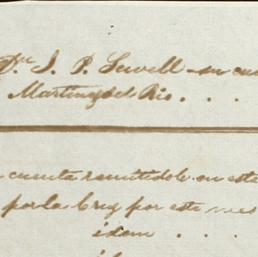 Dn J. P. Sewell su cu
Martinez del Rio . . .
cuenta remitidole en este
por la brig por este mes
idem . . .